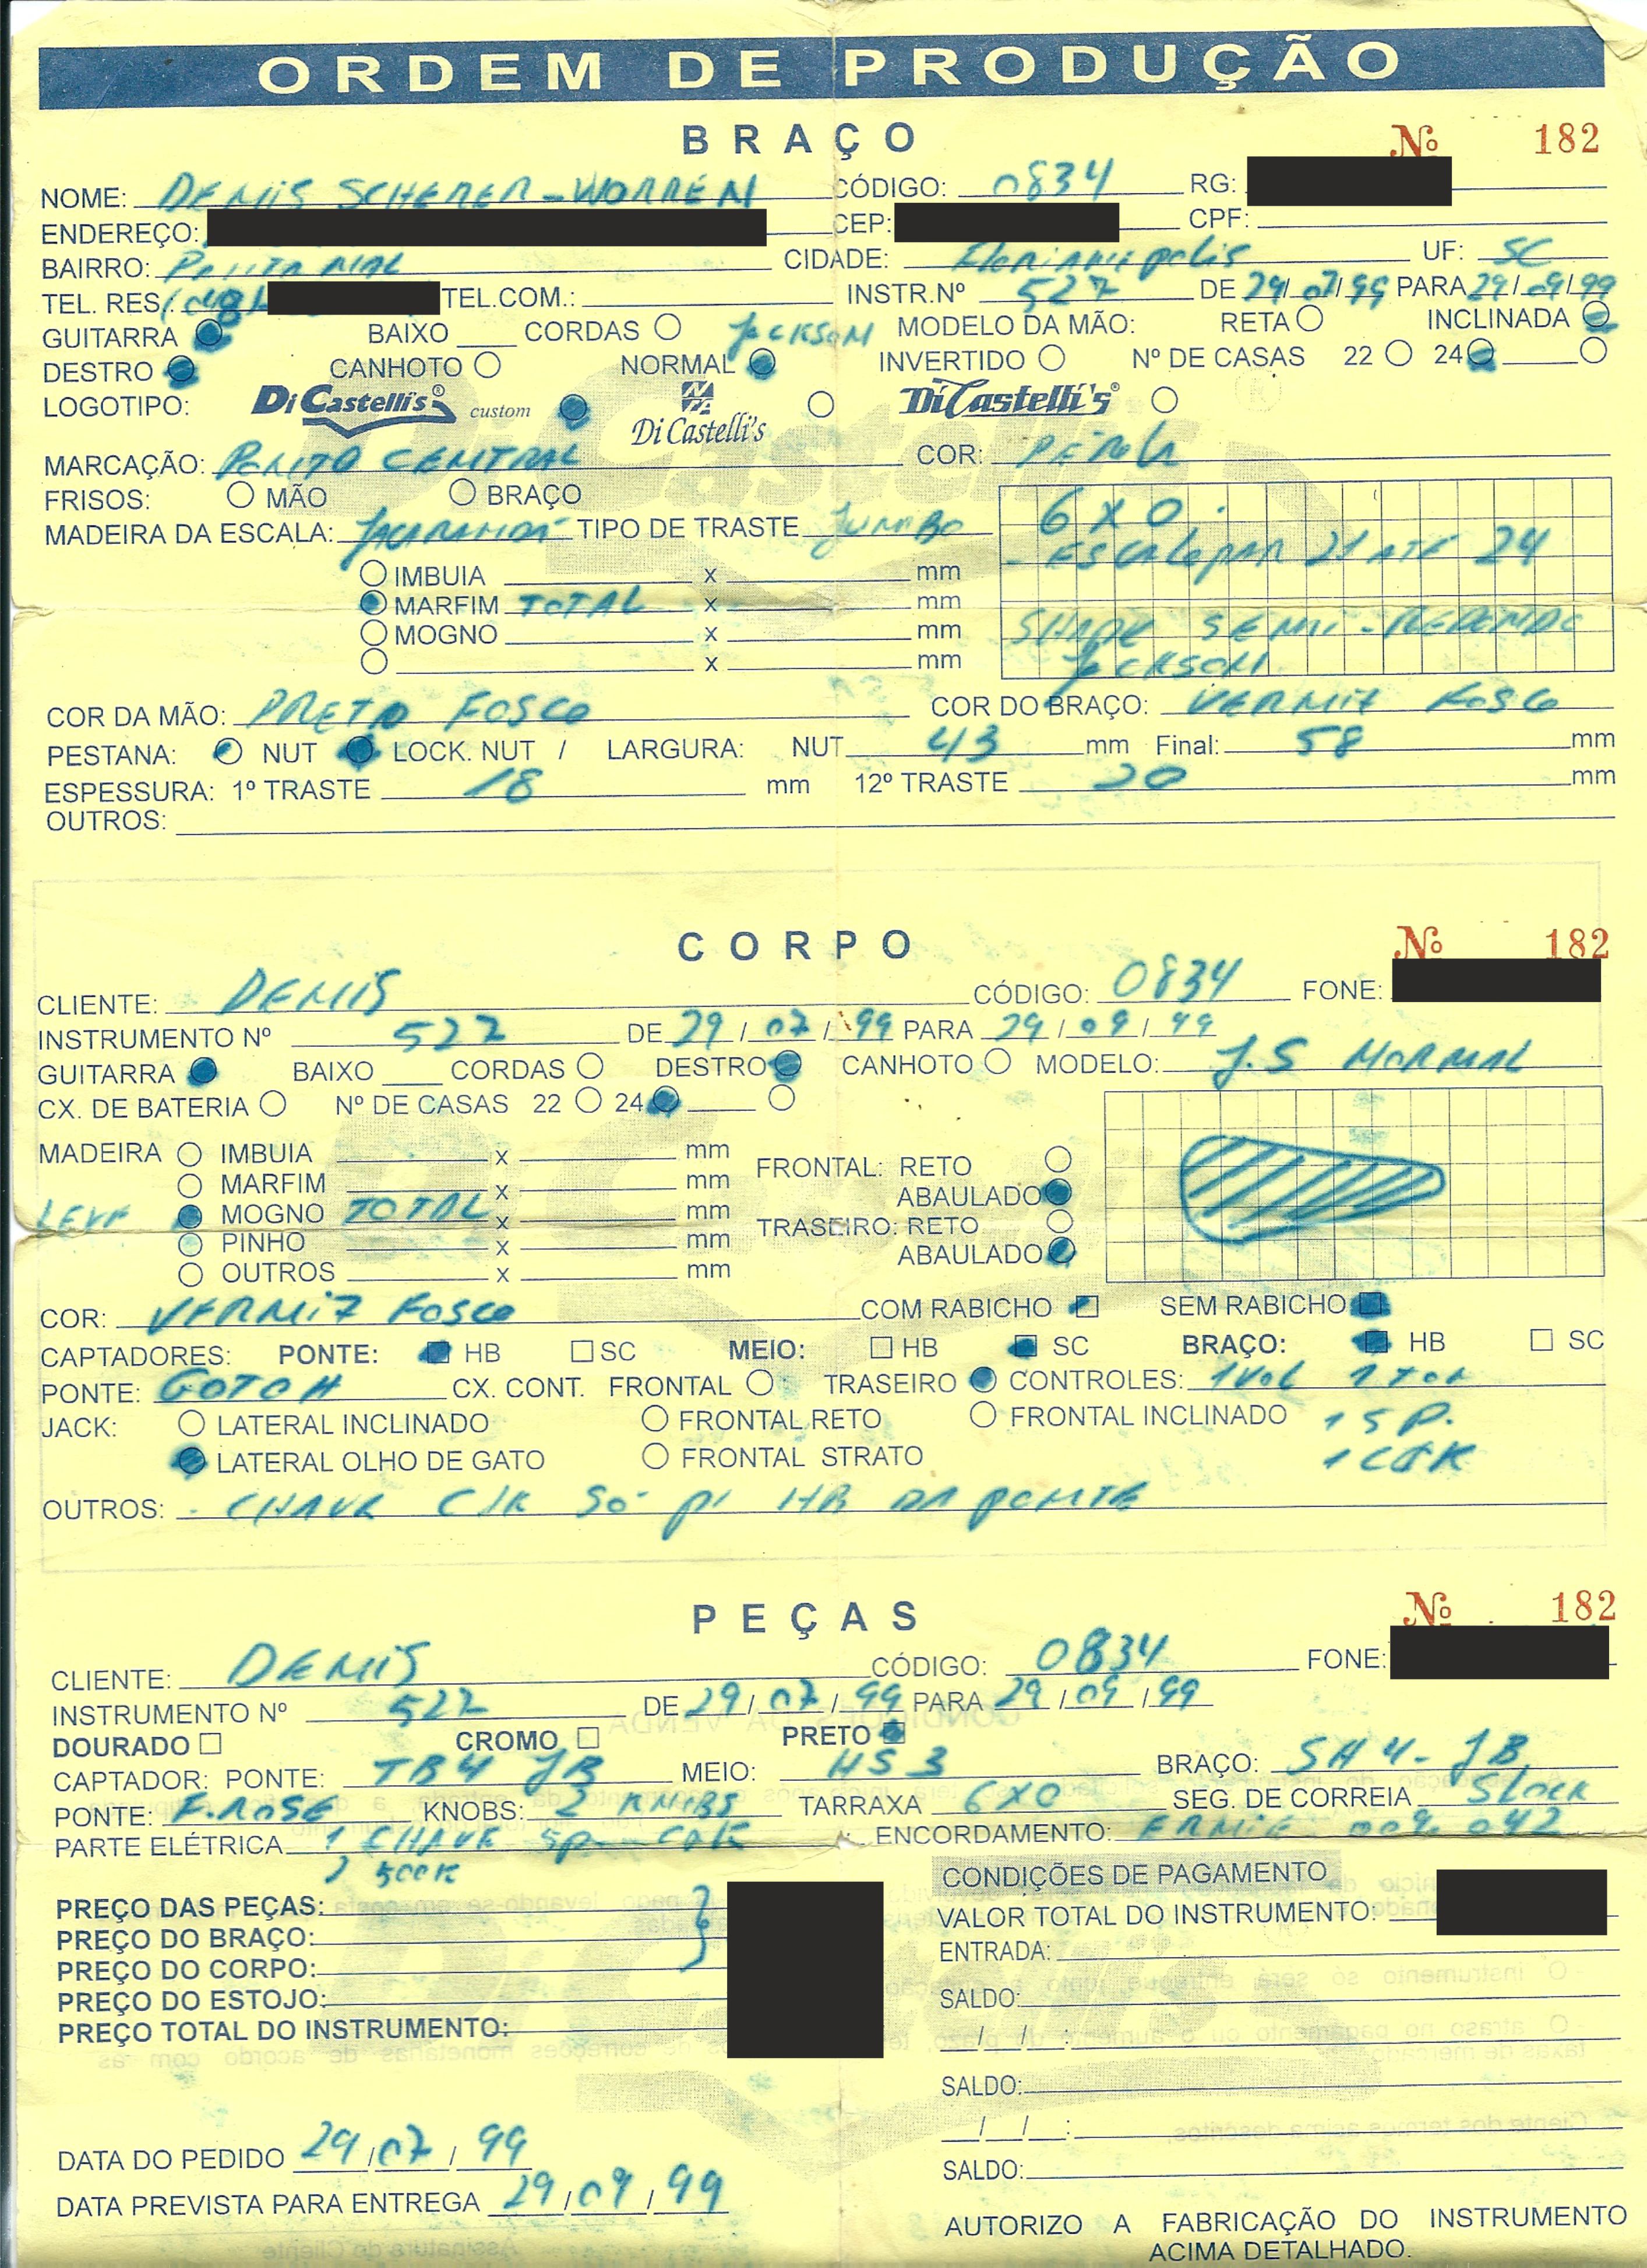 ORDEM DE PRODUÇÃO
BRAÇO
Nº 182
NOME: DEMIS SCHERER-WORREN CÓDIGO: 0834 RG:
ENDEREÇO: CEP: CPF:
BAIRRO: PANTANAL CIDADE: Florianopolis UF: SC
TEL. RES: TEL.COM.: INSTR.Nº 527 DE 29/07/99 PARA 29/09/99
GUITARRA BAIXO CORDAS JACKSON MODELO DA MÃO: RETA INCLINADA
DESTRO CANHOTO NORMAL INVERTIDO Nº DE CASAS 22 24
LOGOTIPO: DiCastelli's® custom DiCastelli's DiCastelli's®
MARCAÇÃO: PONTO CENTRAL COR: PÉROLA
FRISOS: MÃO BRAÇO
6 X 0
MADEIRA DA ESCALA: JACARANDÁ TIPO DE TRASTE JUMBO
- ESCALOPAR 21 ATÉ 24
IMBUIA x mm
MARFIM TOTAL x mm
MOGNO x mm
SHAPE SEMI-REDONDO
x mm
JACKSON
COR DA MÃO: PRETO FOSCO COR DO BRAÇO: VERNIZ FOSCO
PESTANA: NUT LOCK. NUT / LARGURA: NUT 43 mm Final: 58 mm
ESPESSURA: 1º TRASTE 18 mm 12º TRASTE 20 mm
OUTROS:
CORPO
Nº 182
CLIENTE: DEMIS CÓDIGO: 0834 FONE:
INSTRUMENTO Nº 527 DE 29/07/99 PARA 29/09/99
GUITARRA BAIXO CORDAS DESTRO CANHOTO MODELO: J.S NORMAL
CX. DE BATERIA Nº DE CASAS 22 24
MADEIRA IMBUIA x mm
FRONTAL: RETO
MARFIM x mm
ABAULADO
LEVE MOGNO TOTAL x mm
TRASEIRO: RETO
PINHO x mm
ABAULADO
OUTROS x mm
COR: VERNIZ FOSCO COM RABICHO SEM RABICHO
CAPTADORES: PONTE: HB SC MEIO: HB SC BRAÇO: HB SC
PONTE: GOTOH CX. CONT. FRONTAL TRASEIRO CONTROLES: 1 VOL 1 TON
JACK: LATERAL INCLINADO FRONTAL RETO FRONTAL INCLINADO 1 5 P.
LATERAL OLHO DE GATO FRONTAL STRATO
OUTROS: - CHAVE SÓ P/ HB DA PONTE
PEÇAS
Nº 182
CLIENTE: DEMIS CÓDIGO: 0834 FONE:
INSTRUMENTO Nº 527 DE 29/07/99 PARA 29/09/99
DOURADO CROMO PRETO
CAPTADOR: PONTE: TB4 JB MEIO: HS3 BRAÇO: SH4-JB
PONTE: F.ROSE KNOBS: 2 KNOBS TARRAXA 6X0 SEG. DE CORREIA SLOCK
PARTE ELÉTRICA 1 CHAVE 5P ENCORDAMENTO: ERNIE 009.042
2 500K
CONDIÇÕES DE PAGAMENTO
PREÇO DAS PEÇAS:
VALOR TOTAL DO INSTRUMENTO:
PREÇO DO BRAÇO:
ENTRADA:
PREÇO DO CORPO:
PREÇO DO ESTOJO:
SALDO:
PREÇO TOTAL DO INSTRUMENTO:
/ / :
SALDO:
/ / :
DATA DO PEDIDO 29/07/99
SALDO:
DATA PREVISTA PARA ENTREGA 29/09/99
AUTORIZO A FABRICAÇÃO DO INSTRUMENTO
ACIMA DETALHADO.